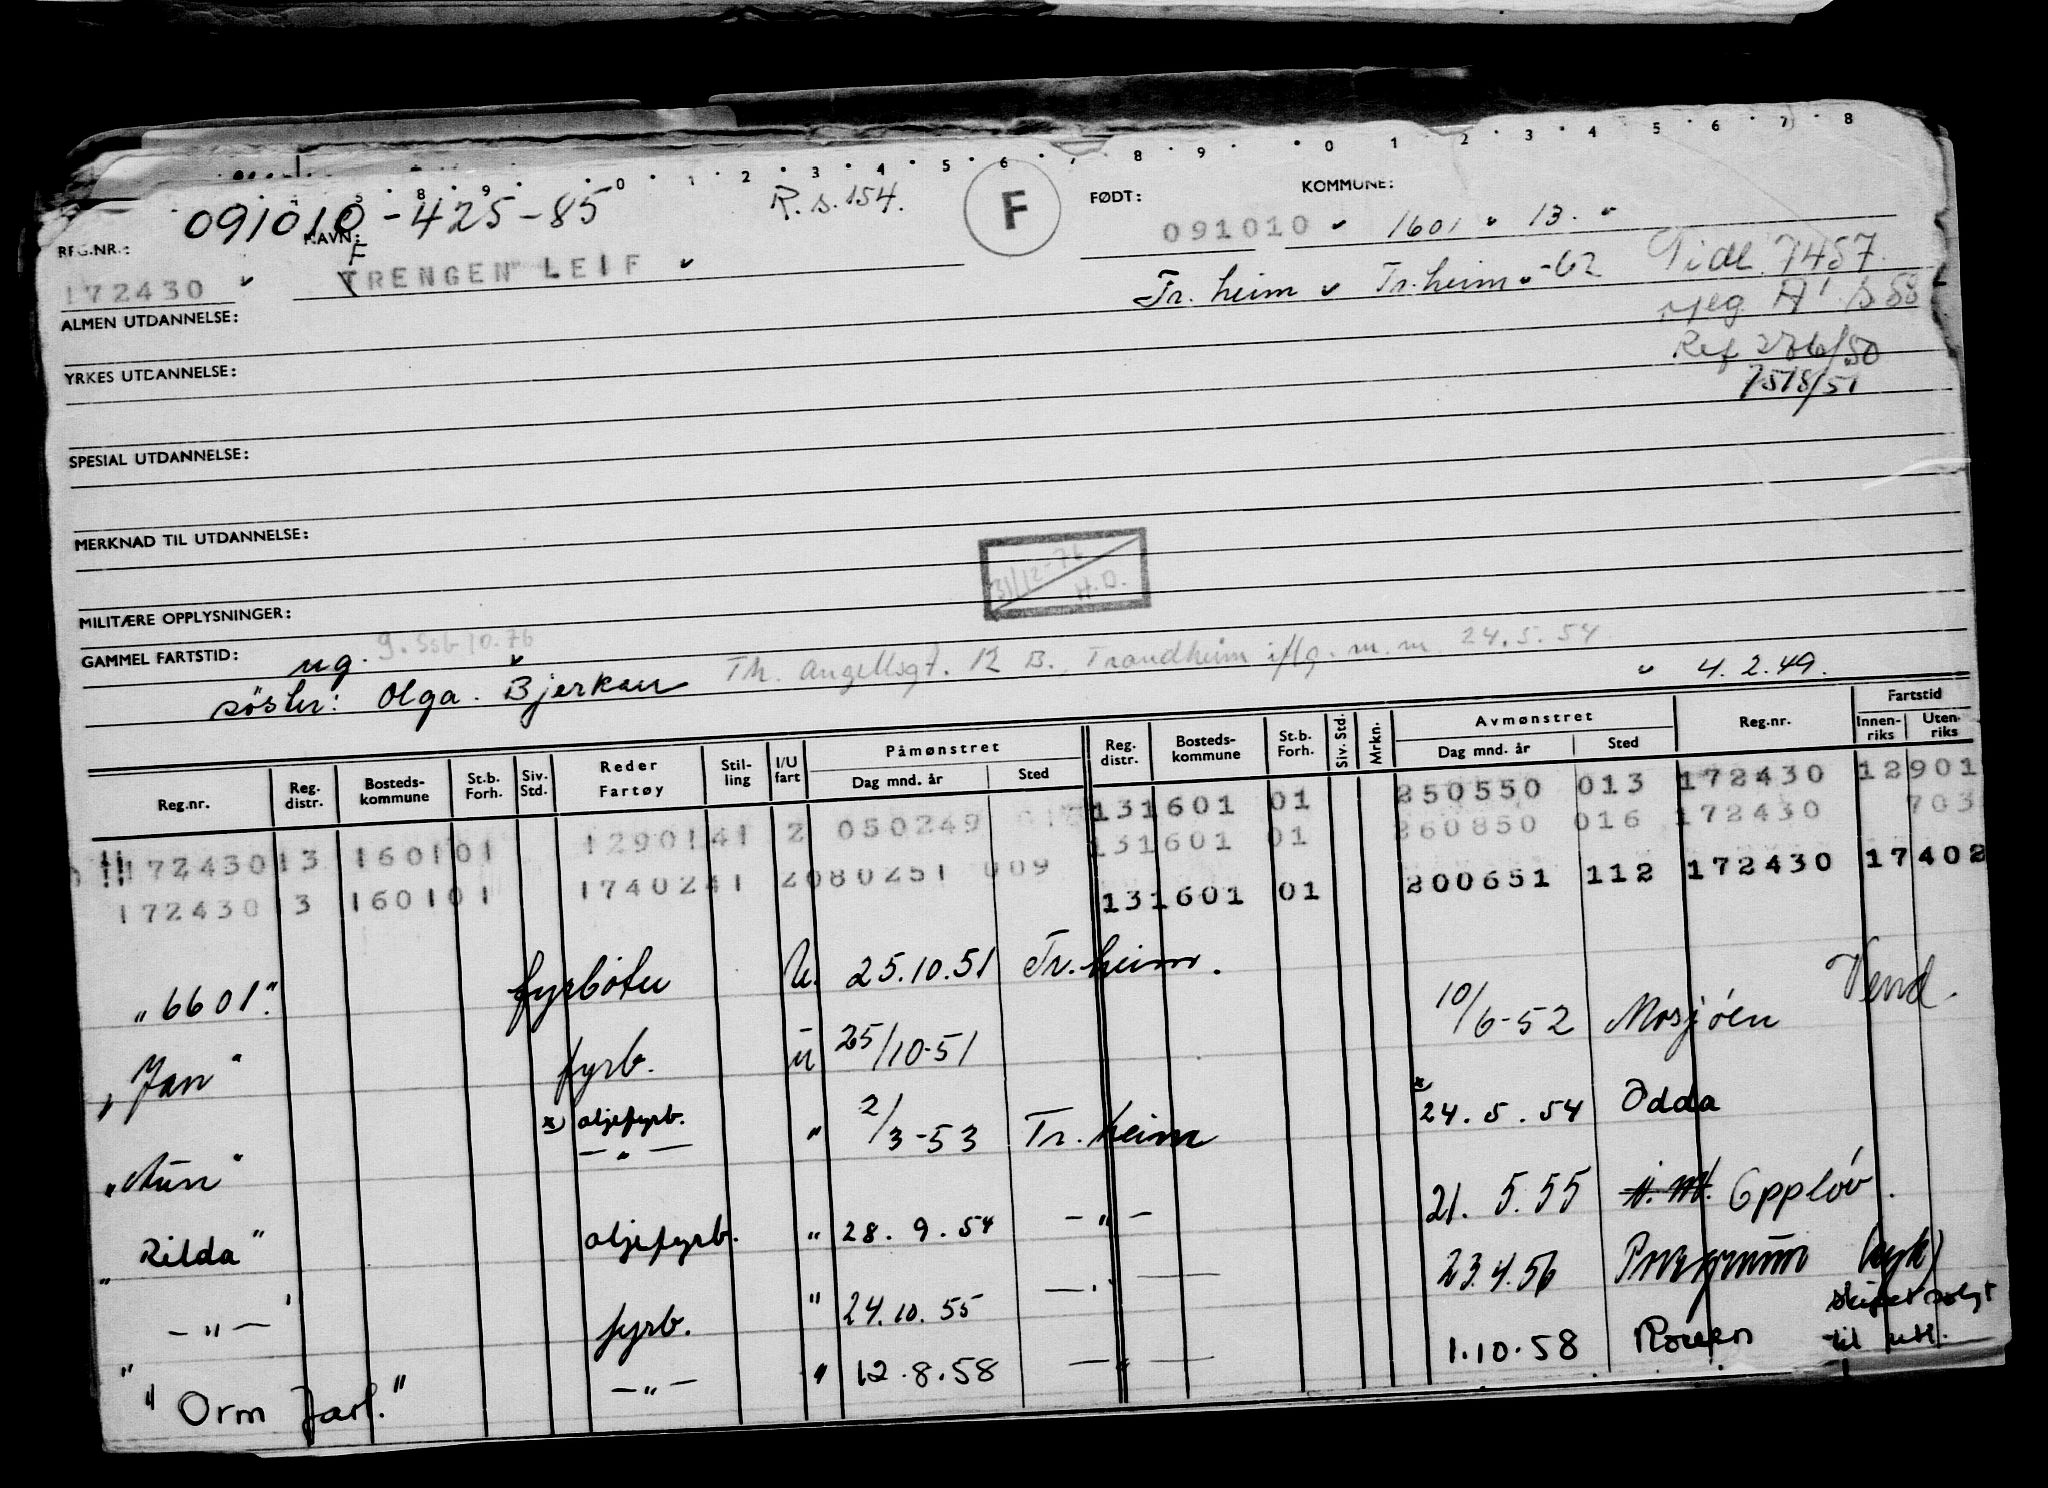 0 1 2 3 4 5 6 7 8 9 0 1 2 3 4 5 6 7 8
091010-425-85 R.s.154. F FØDT: KOMMUNE:
REG.NR.: NAVN: 091010 1601 13.
172430 TRENGEN LEIF F Tr.heim Tr.heim -62 Tidl. 7457
ALMEN UTDANNELSE:
Ref 276/50
YRKES UTDANNELSE: 7518/51
SPESIAL UTDANNELSE:
MERKNAD TIL UTDANNELSE:
31/12-76
H.O.
MILITÆRE OPPLYSNINGER:
GAMMEL FARTSTID: ug.
söster: Olga Bjerkan Th. Angellsgt. 12 B., Trondheim iflg. m.m 24.5.54 4.2.49.
Reg.nr. Reg. distr. Bosteds-kommune St.b. Forh. Siv. Std. Reder Fartøy Stil-ling I/U fart Påmønstret Dag mnd. år Sted Reg. distr. Bosteds-kommune St.b. Forh. Siv. Std. Mrkn. Avmønstret Dag mnd. år Sted Reg.nr. Fartstid Innen-riks Uten-riks
!! 172430 13 1601 01 1290141 2 050249 131601 01 250550 013 172430 12901
131601 01 260850 016 172430 703
172430 13 1601 01 1740241 2 080251 009 131601 01 200651 112 172430 17402
"6601" fyrböter U. 25.10.51 Tr.heim.
"Jan" fyrb. U 25/10-51 10/6-52 Mosjöen Vend.
"Aun" x) oljefyrb. -"- " 2/3-53 Tr.heim x) 24.5.54 Odda
"Rilda" oljefyrb. " 28.9.54 -"- 21.5.55 Oppløv.
-"- fyrb. " 24.10.55 -"- 23.4.56 (syk)
"Orm Jarl." -"- " 12.8.58 -"- 1.10.58 Rouen skipet solgt til utl.